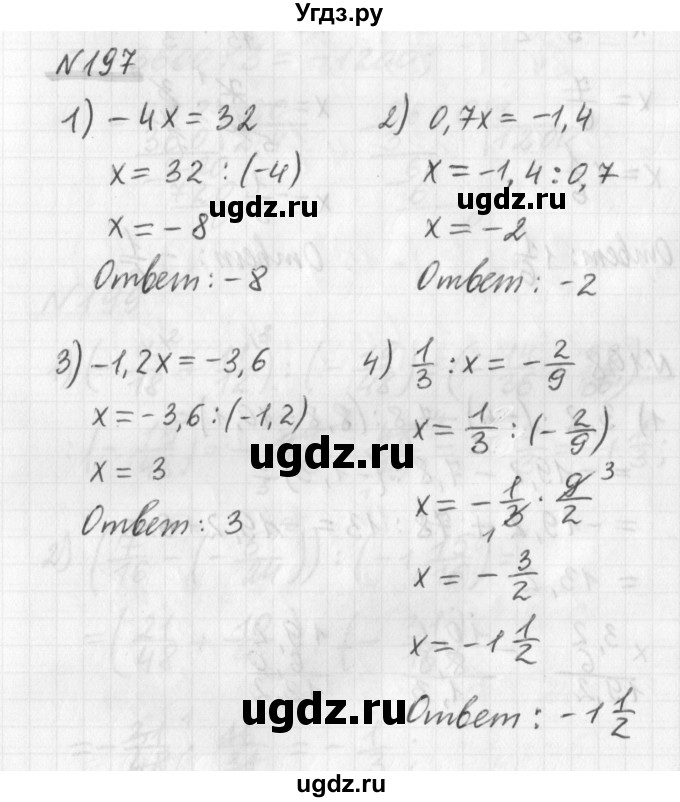 Угдз.ру
N197
1) -4x = 32
x = 32 : (-4)
ugdz.ru
x = -8
Ответ: -8
2) 0,7x = -1,4
x = -1,4 : 0,7
ugdz.ru
x = -2
Ответ: -2
3) -1,2x = -3,6
x = -3,6 : (-1,2)
ugdz.ru
x = 3
Ответ: 3
4) 1/3 : x = -2/9
x = 1/3 : (-2/9)
x = -1/3 · 9/2 3
1
x = -3/2
x = -1 1/2
ugdz.ru
Ответ: -1 1/2
ugdz.ru